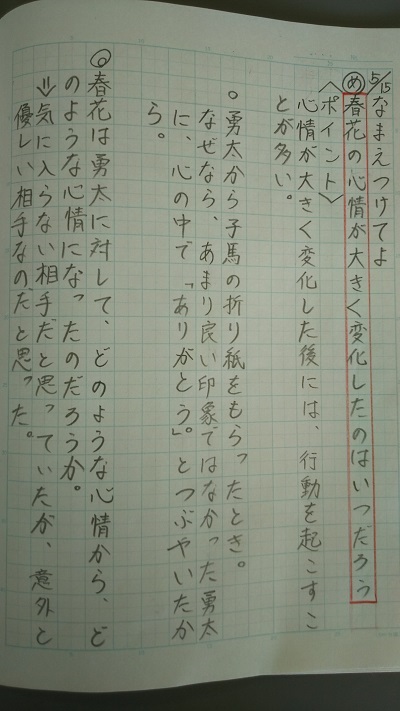 5/15 なまえつけてよ
め 春花の心情が大きく変化したのはいつだろう
〈ポイント〉
心情が大きく変化した後には、行動を起こすこ
とが多い。
○勇太から子馬の折り紙をもらったとき。
なぜなら、あまり良い印象ではなかった勇太
に、心の中で「ありがとう」。とつぶやいたか
ら。
◎春花は勇太に対して、どのような心情から、ど
のような心情になったのだろうか。
⇒気に入らない相手だと思っていたが、意外と
優しい相手なのだと思った。